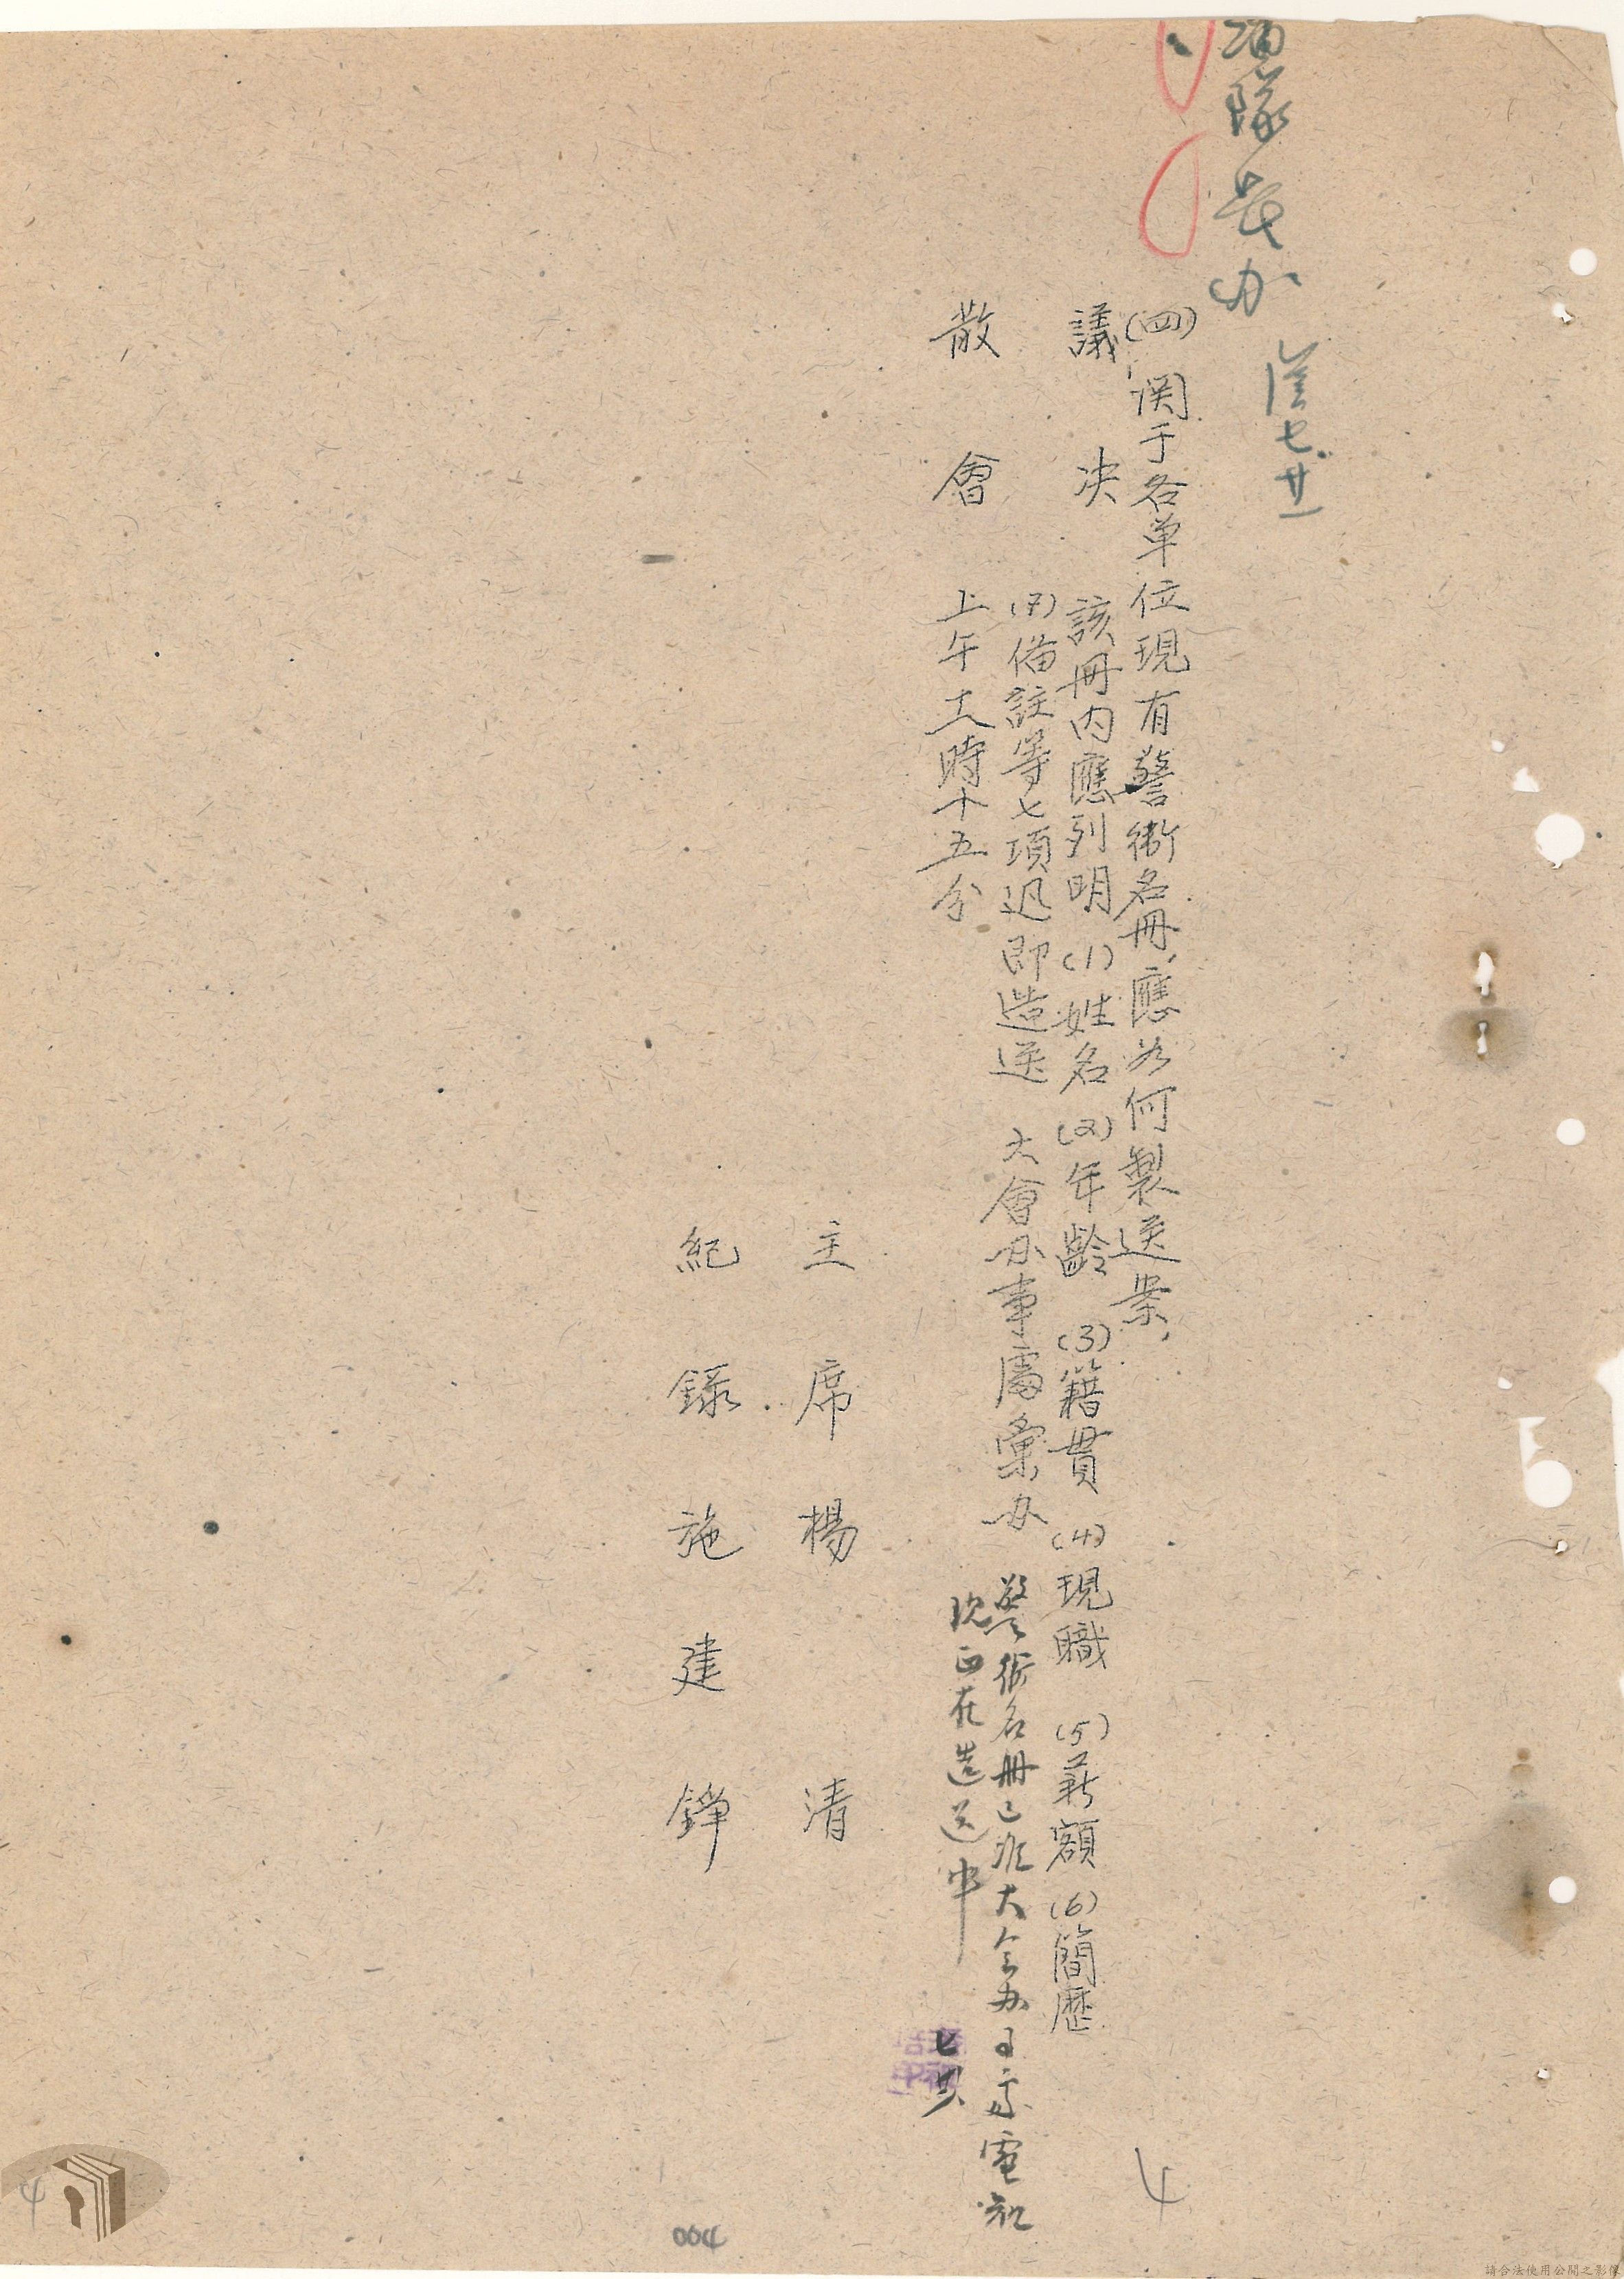 隊長办
七廿一
(四)関于各单位現有警衛名冊,應为何製送案,
議決 該冊内應列明(1)姓名(2)年齡(3)籍貫(4)現職(5)薪額(6)簡歷
(7)備註等七項迅即造送 大會办事處彙办
警衛名冊已准大会办事处電知
現正在造送中
七廿
散會 上午十一時十五分
主席 楊清
紀錄 施建錚
4
004
4
請合法使用公開之影像